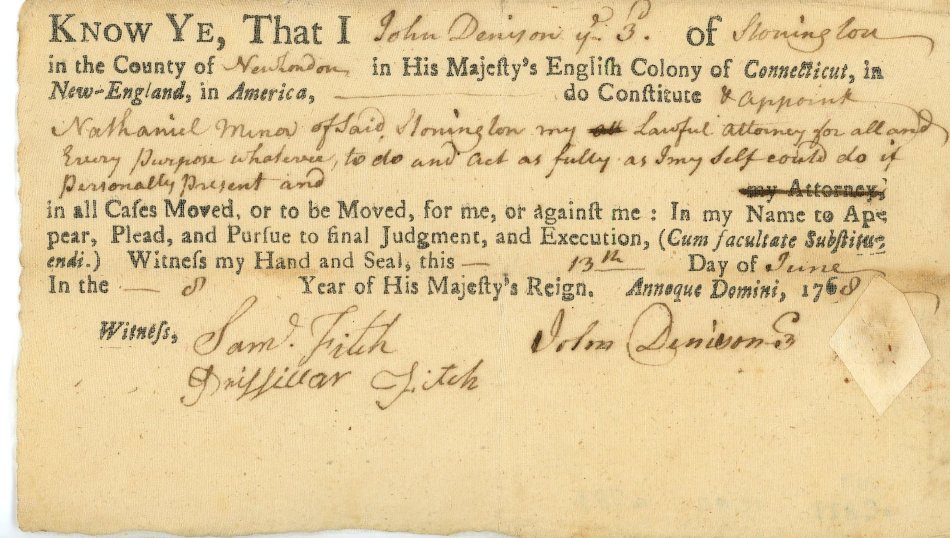 KNOW YE, That I John Denison ye. 3. of Stonington
in the County of Newlondon in His Majeſty's English Colony of Connecticut, in
New-England, in America, do Conſtitute & Appoint
Nathaniel Minor of Said Stonington my all Lawful Attorney for all and
Every Purpose whatsever, to do and Act as fully as I my Self could do if
Personally Present and my Attorney,
in all Caſes Moved, or to be Moved, for me, or againſt me : In my Name to Ap-
pear, Plead, and Purſue to final Judgment, and Execution, (Cum facultate Subſtitu-
endi.) Witneſs my Hand and Seal, this — 13th Day of June
In the — 8 Year of His Majeſty's Reign. Annoque Domini, 1768
Witneſs, Samd. Fitch John Denison 3
Prissillar Fitch